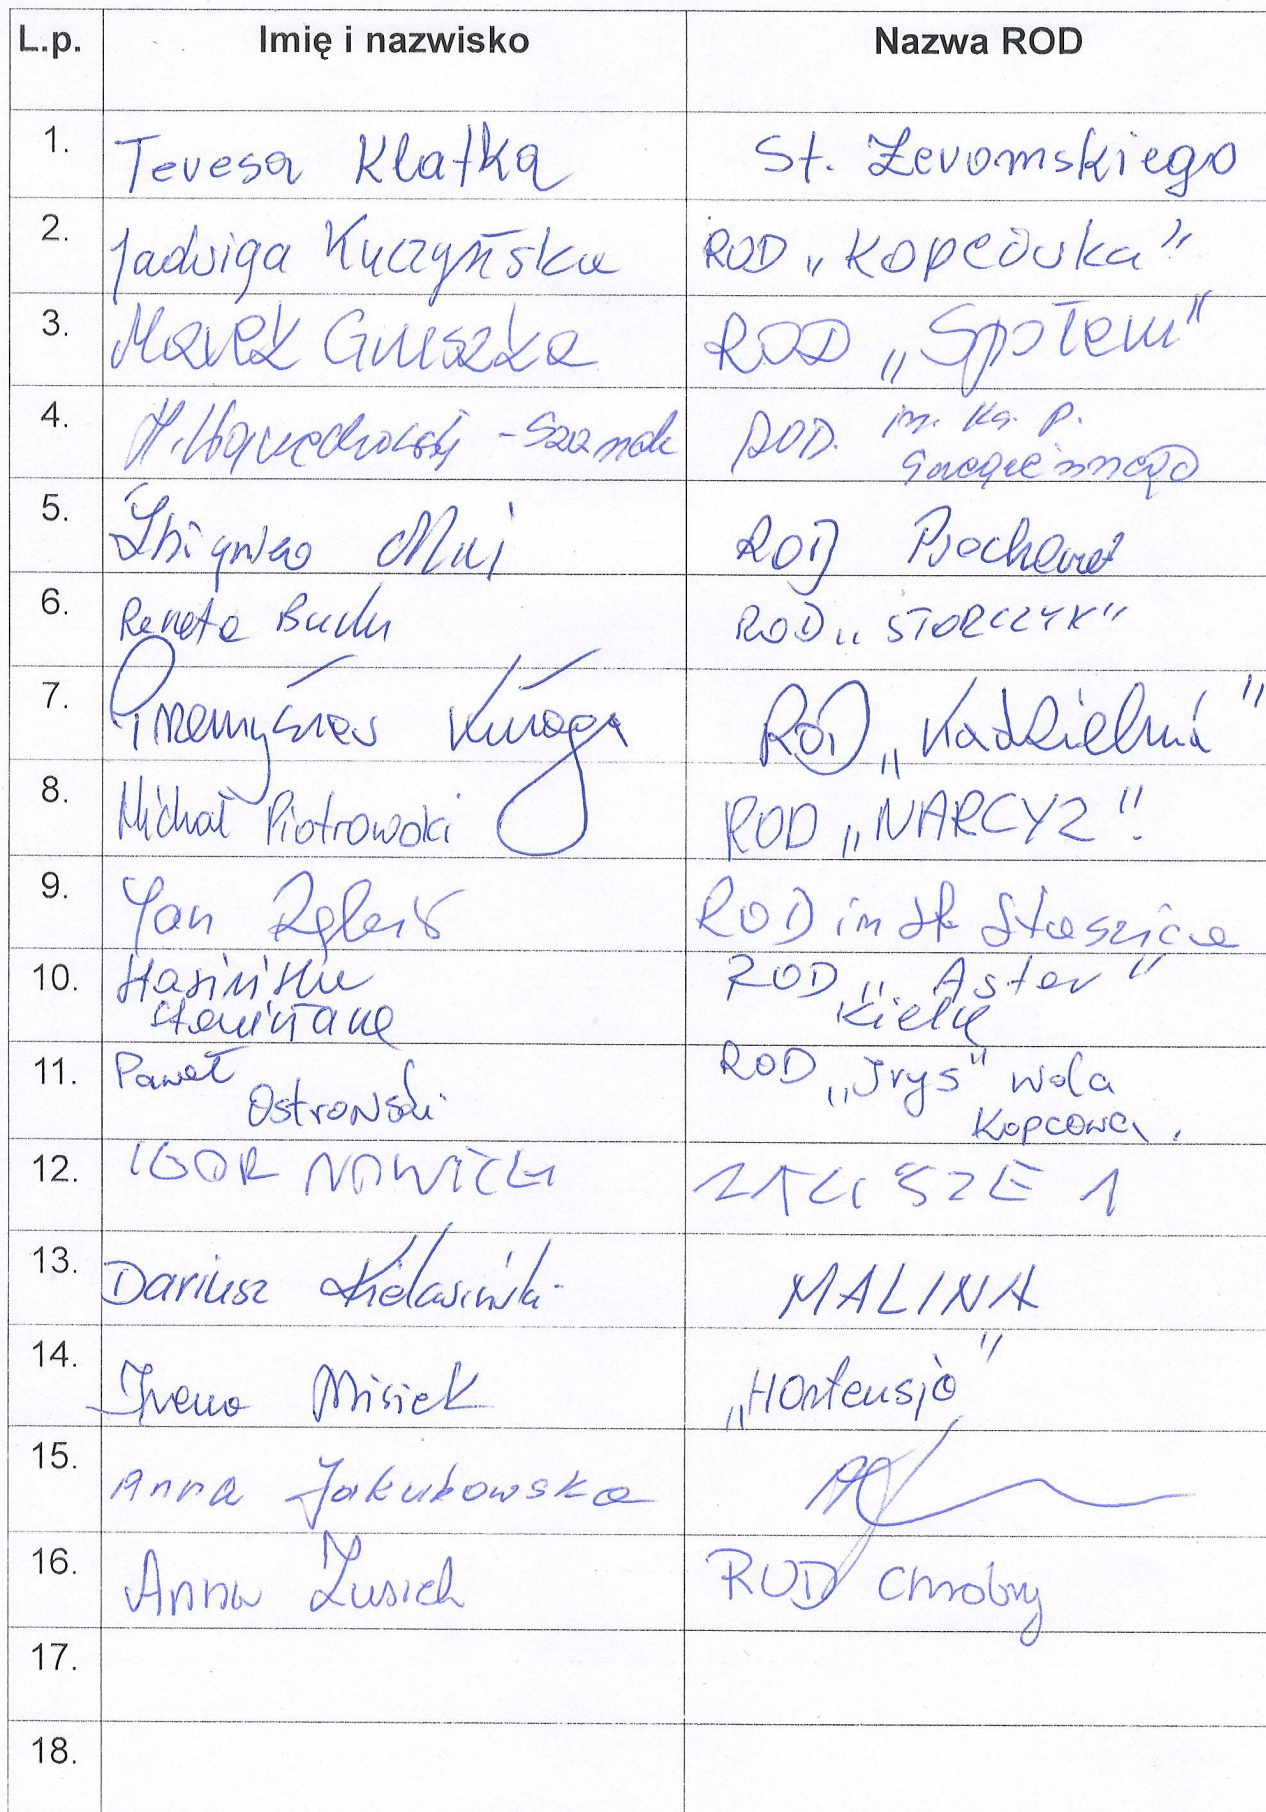 L.p. Imię i nazwisko Nazwa ROD
1. Teresa Klatka St. Żeromskiego
2. Jadwiga Kuczyńska ROD „Kopcówka"
3. Marek Gruszka ROD „Społem"
4. - Szomak ROD. im. Ks. P.
Ściegiennego
5. Zbigniew ROD
6. Renata ROD „STORCZYK"
7. Przemysław ROD „Kadzielnia"
8. Michał Piotrowski ROD „NARCYZ".
9. Jan ROD im St Staszica
10. ROD „Aster"
Kielce
11. Paweł ROD „Irys" Wola
Ostrowski Kopcowa.
12. IGOR NOWICKI ZACISZE 1
13. Dariusz MALINA
14. Irena Misiek „Hortensja"
15. Anna Jakubowska
16. Anna ROD Chrobry
17.
18.